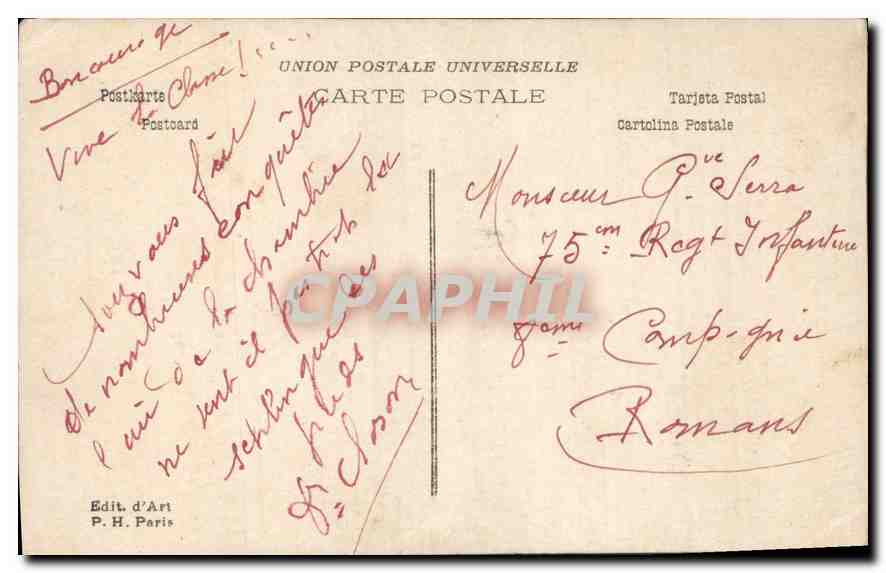 Bon courage
Vive la Classe!.....
UNION POSTALE UNIVERSELLE
Postkarte
CARTE POSTALE
Tarjeta Postal
Postcard
Cartolina Postale
avez vous fait
de nombreuses conquêtes
l'air de la chambrée
ne sent il pas trop la
schlingue des
pieds
Closon
Monsieur Gve Serra
75em Regt Infanterie
8eme Compagnie
Romans
CPAPHIL
Edit. d'Art
P. H. Paris